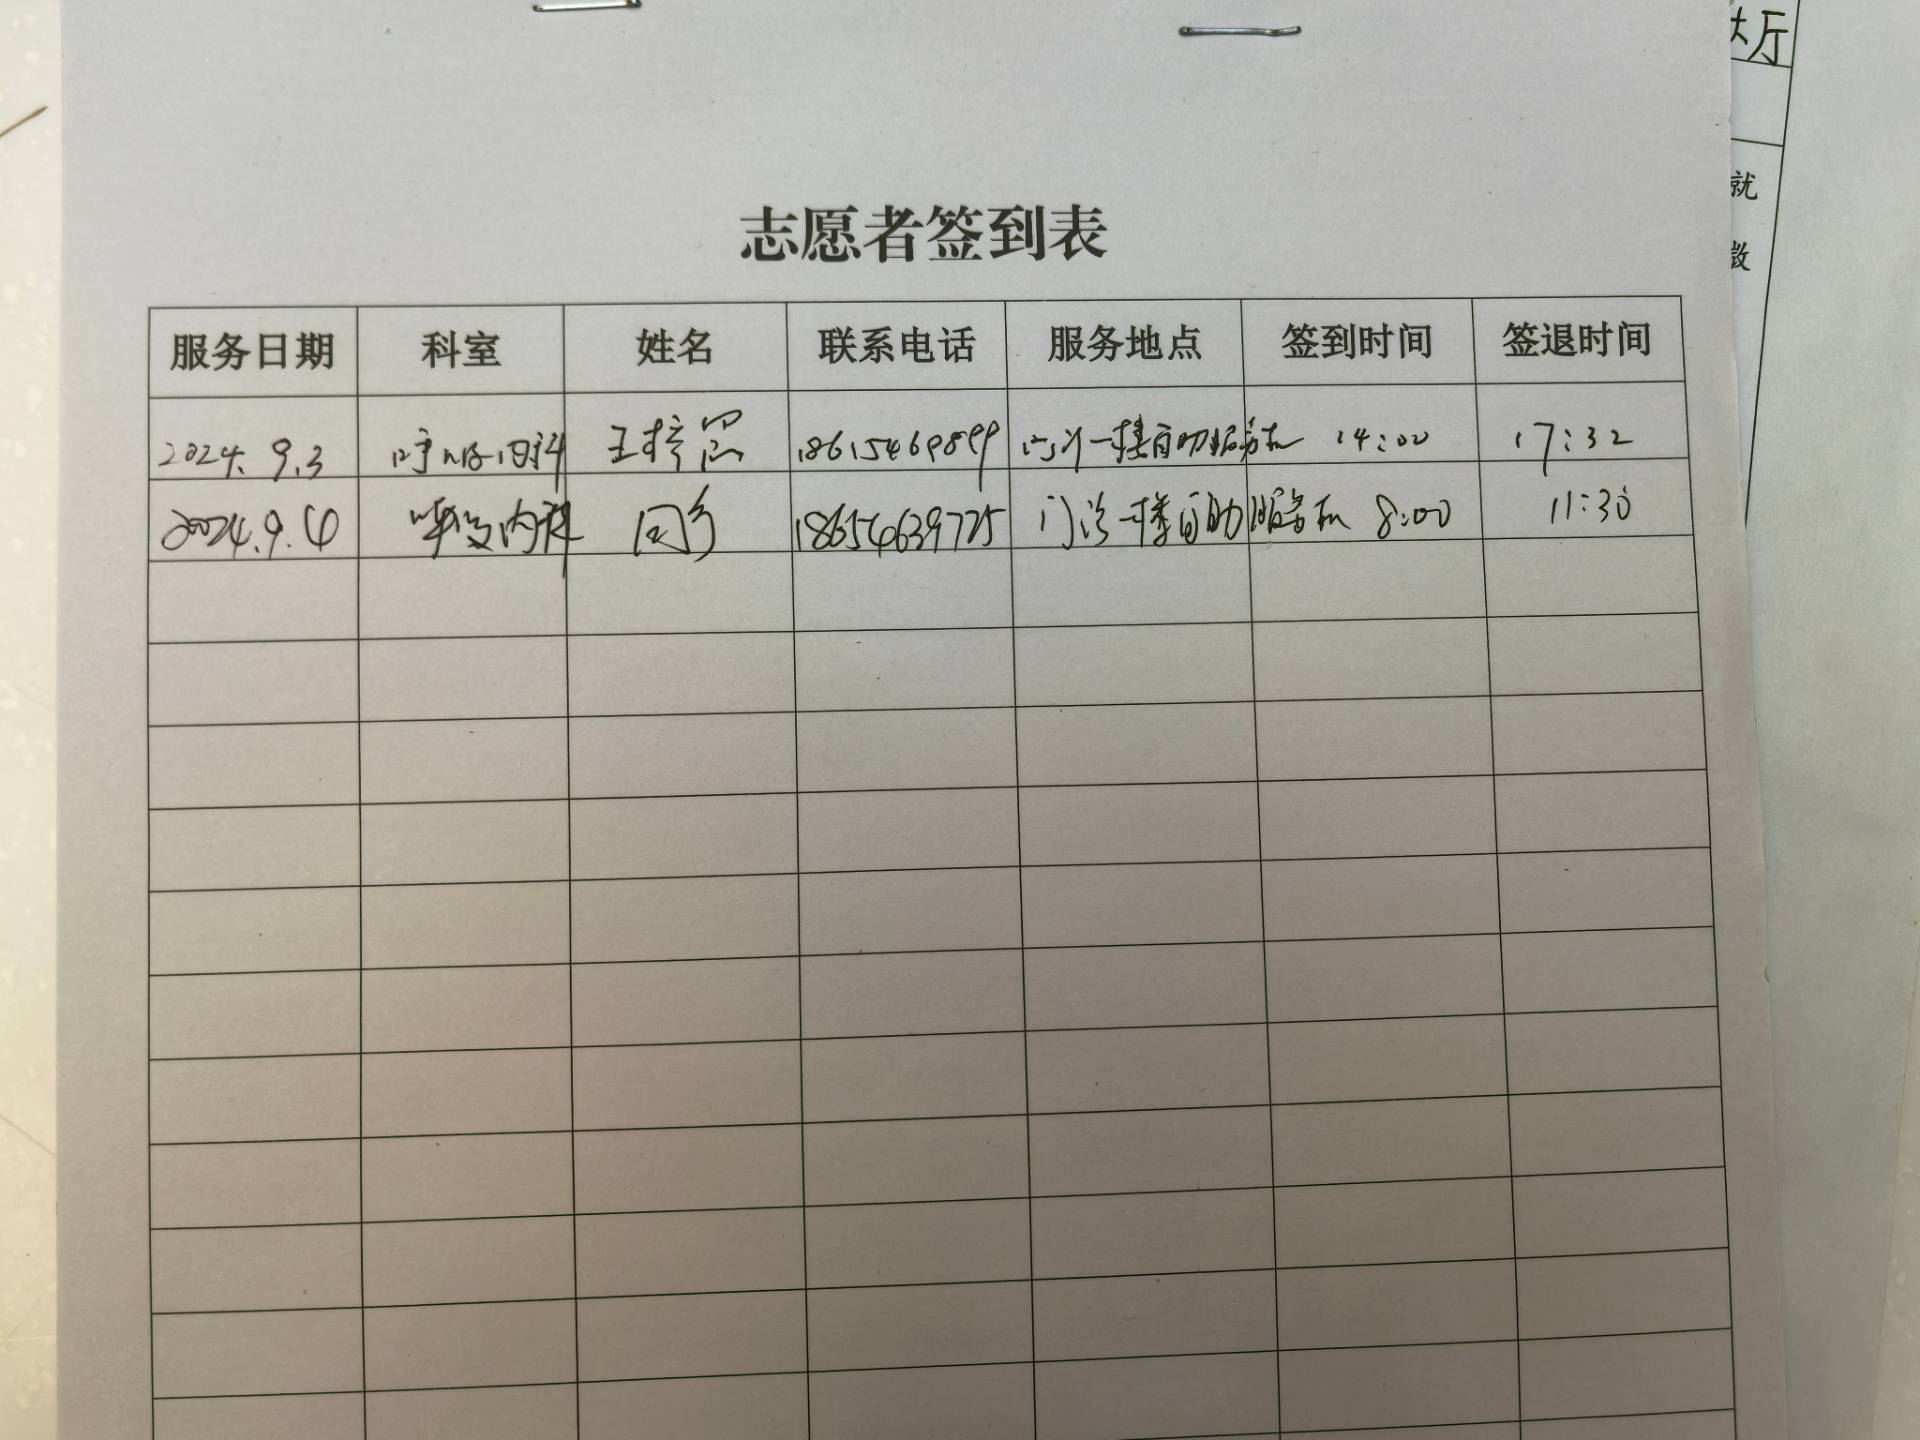 大厅
就
数
志愿者签到表
服务日期 科室 姓名 联系电话 服务地点 签到时间 签退时间
2024.9.3 呼吸内科 王 18615469899 门诊一楼自助服务机 14:00 17:32
2024.9.4 呼吸内科 18654639725 门诊一楼自助服务机 8:00 11:30